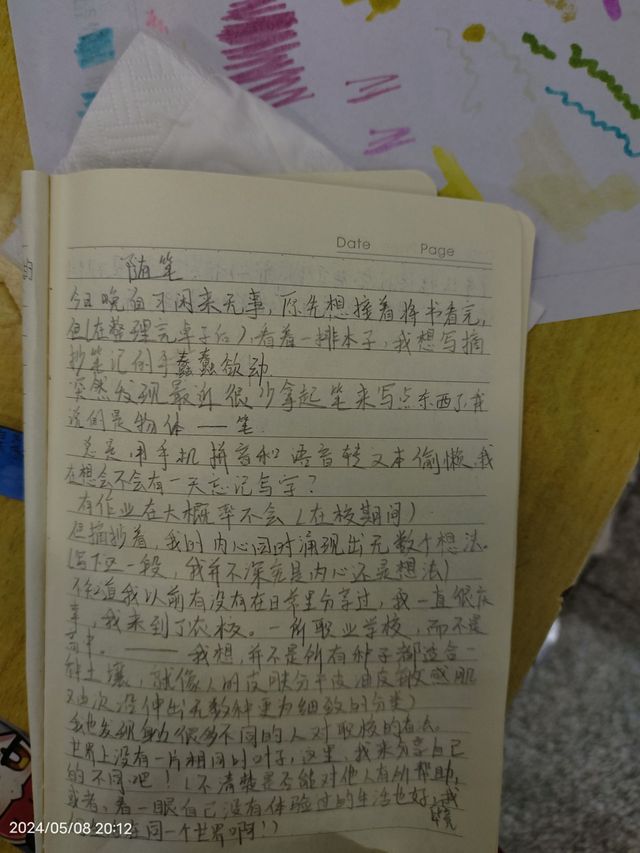 Date Page
随笔
今日晚自习闲来无事，原先想接着将书看完，
但(在整理完桌子后)，看着一排本子，我想写摘
抄笔记的手蠢蠢欲动
突然发现最近很少拿起笔来写点东西了，我
说的是物体——笔
总是用手机拼音和语音转文本偷懒，我
在想会不会有一天忘记写字？
有作业在大概率不会(在校期间)
但摘抄着，我的内心同时涌现出无数个想法。
(写下这一段，我并不深究是内心还是想法)
不知道我以前有没有在日常里分享过，我一直很庆
幸，我来到了农校。一所职业学校，而不是
高中。——我想，并不是所有种子都适合一
种土壤，就像人的皮肤分干皮油皮敏感肌
(这次没伸出无数种更为细致的分类)
我也发现身边很多不同的人对职校的看法。
世界上没有一片相同的叶子，这里，我来分享自己
的不同吧！(不清楚是否能对他人有所帮助，
或者，看一眼自己没有体验过的生活也好，我
同一个世界啊！)
2024/05/08 20:12